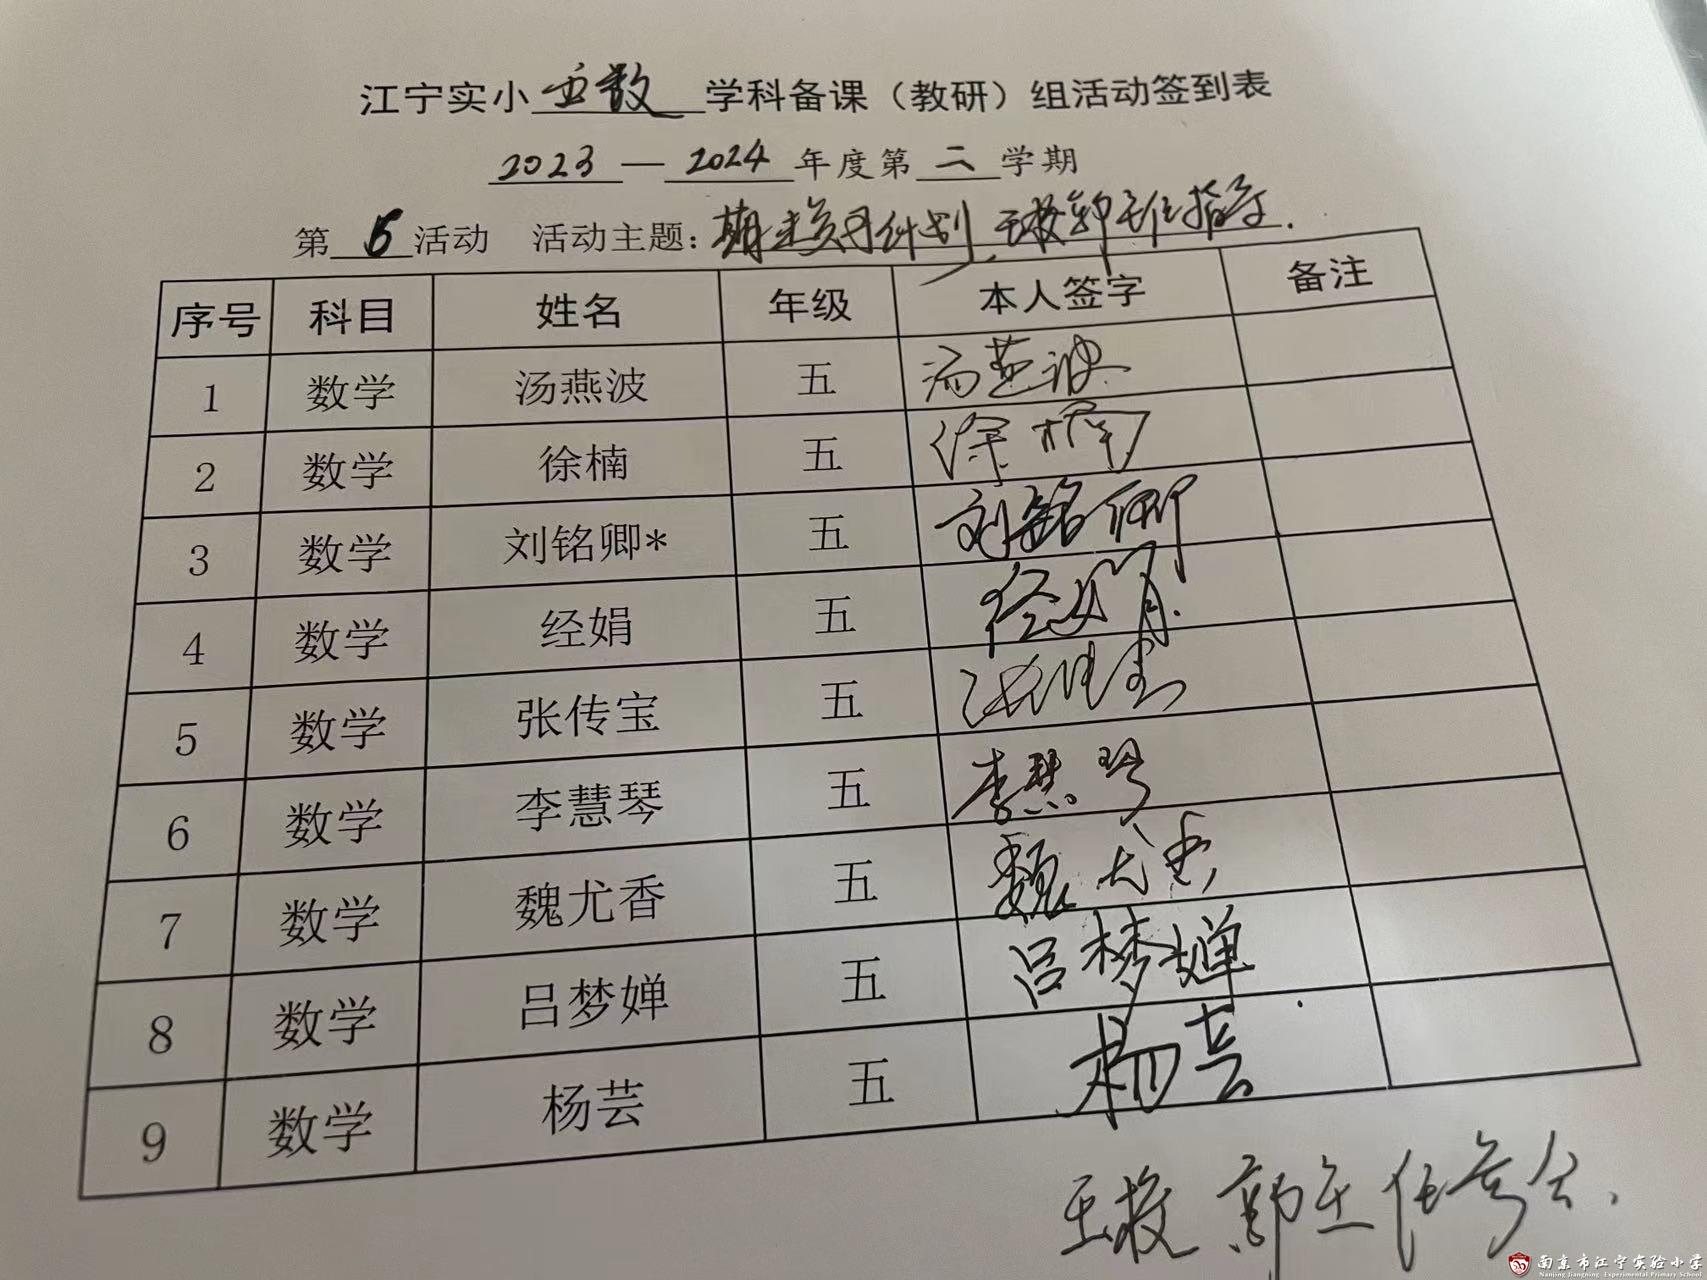 江宁实小 五数 学科备课（教研）组活动签到表
2023 — 2024 年度第 二 学期
第 6 活动 活动主题：期末复习计划 王校郭主任指导.
序号 科目 姓名 年级 本人签字 备注
1 数学 汤燕波 五 汤燕波
2 数学 徐楠 五 徐楠
3 数学 刘铭卿* 五 刘铭卿
4 数学 经娟 五 经娟
5 数学 张传宝 五 张传宝
6 数学 李慧琴 五 李慧琴
7 数学 魏尤香 五 魏尤香
8 数学 吕梦婵 五 吕梦婵
9 数学 杨芸 五 杨芸
王校 郭主任参会.
南京市江宁实验小学
Nanjing Jiangning Experimental Primary School